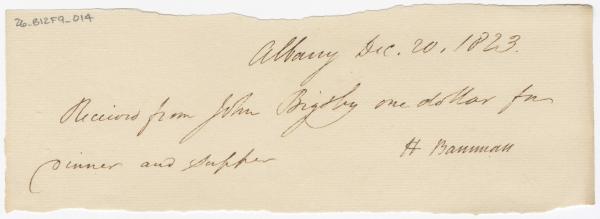 26_B12F9_014
Albany Dec. 20, 1823.
Received from John Bigsby one dollar for
Dinner and Supper
H Bauman